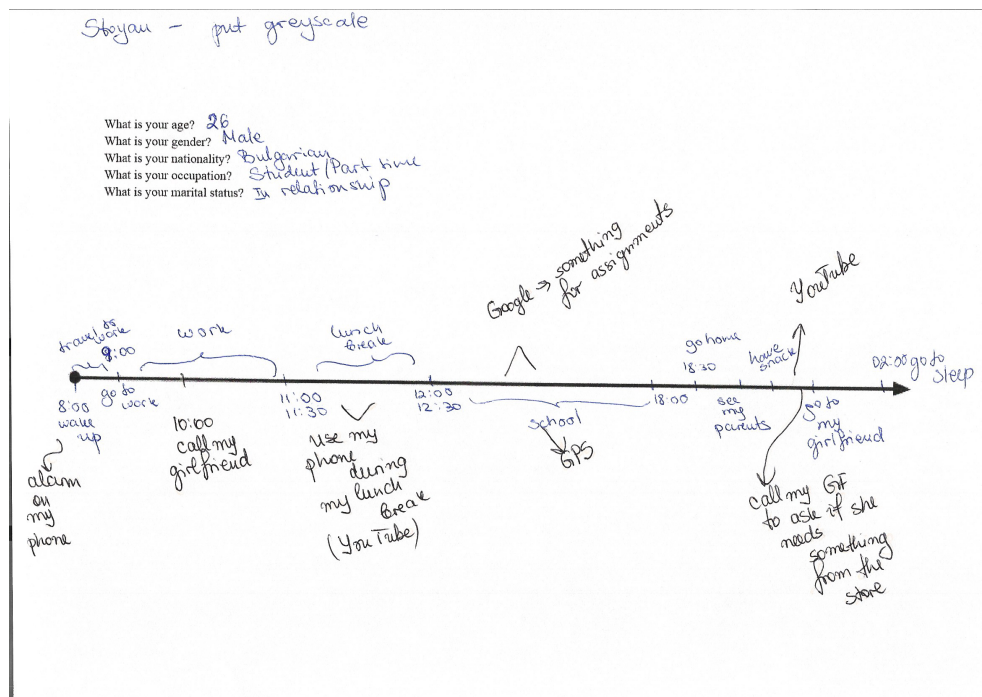 Stoyan - put greyscale
What is your age? 26
What is your gender? Male
What is your nationality? Bulgarian
What is your occupation? Student/Part time
What is your marital status? In relationship
Google → something
for assignments
YouTube
travel to
work
9:00
work
lunch
break
go home
18:30
have
snack
02:00 go to
sleep
8:00
wake
up
go to
work
10:00
call my
girlfriend
11:00
11:30
12:00
12:30
school
18:00
see
my
parents
go to
my
girlfriend
alarm
on
my
phone
use my
phone
during
my lunch
break
(YouTube)
GPS
call my GF
to ask if she
needs
something
from the
store